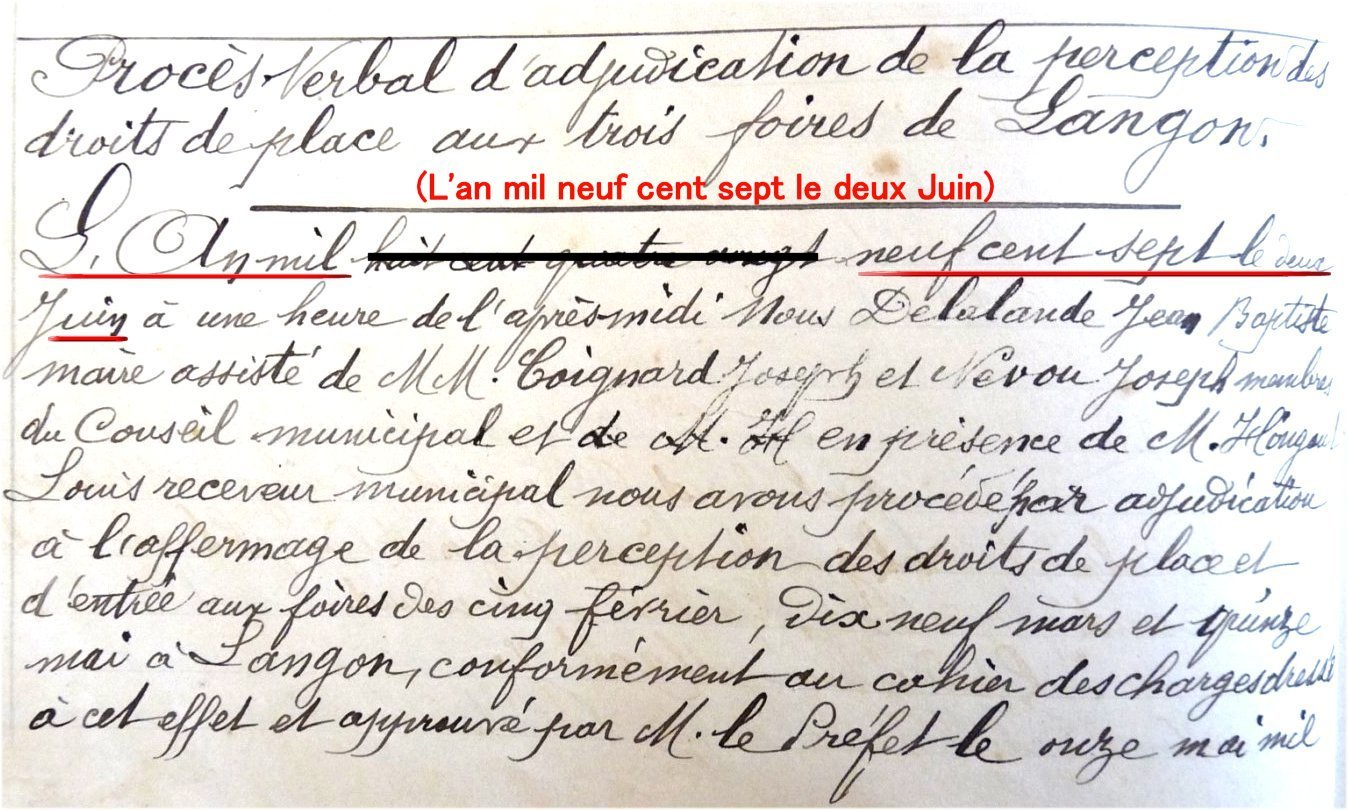 Procès-Verbal d'adjudication de la perception des
droits de place aux trois foires de Langon.
(L'an mil neuf cent sept le deux Juin)
L'An mil huit cent quatre vingt neuf cent sept le deux
Juin à une heure de l'après midi Nous Delalande Jean Baptiste
maire assisté de MM. Coignard Joseph et Nevou Joseph membres
du Conseil municipal et de M. en présence de M.
Louis receveur municipal nous avons procédé par adjudication
à l'affermage de la perception des droits de place et
d'entrée aux foires des cinq février, dix neuf mars et quinze
mai à Langon, conformément au cahier des charges dressé
à cet effet et approuvé par M. le Préfet le onze mai mil